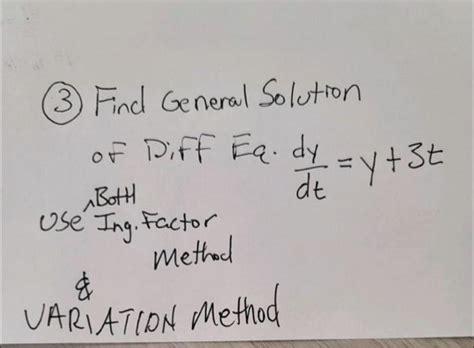 ③ Find General Solution
of Diff Eq. dy/dt = y + 3t
Use Both Ing. Factor
Method
&
VARIATION Method